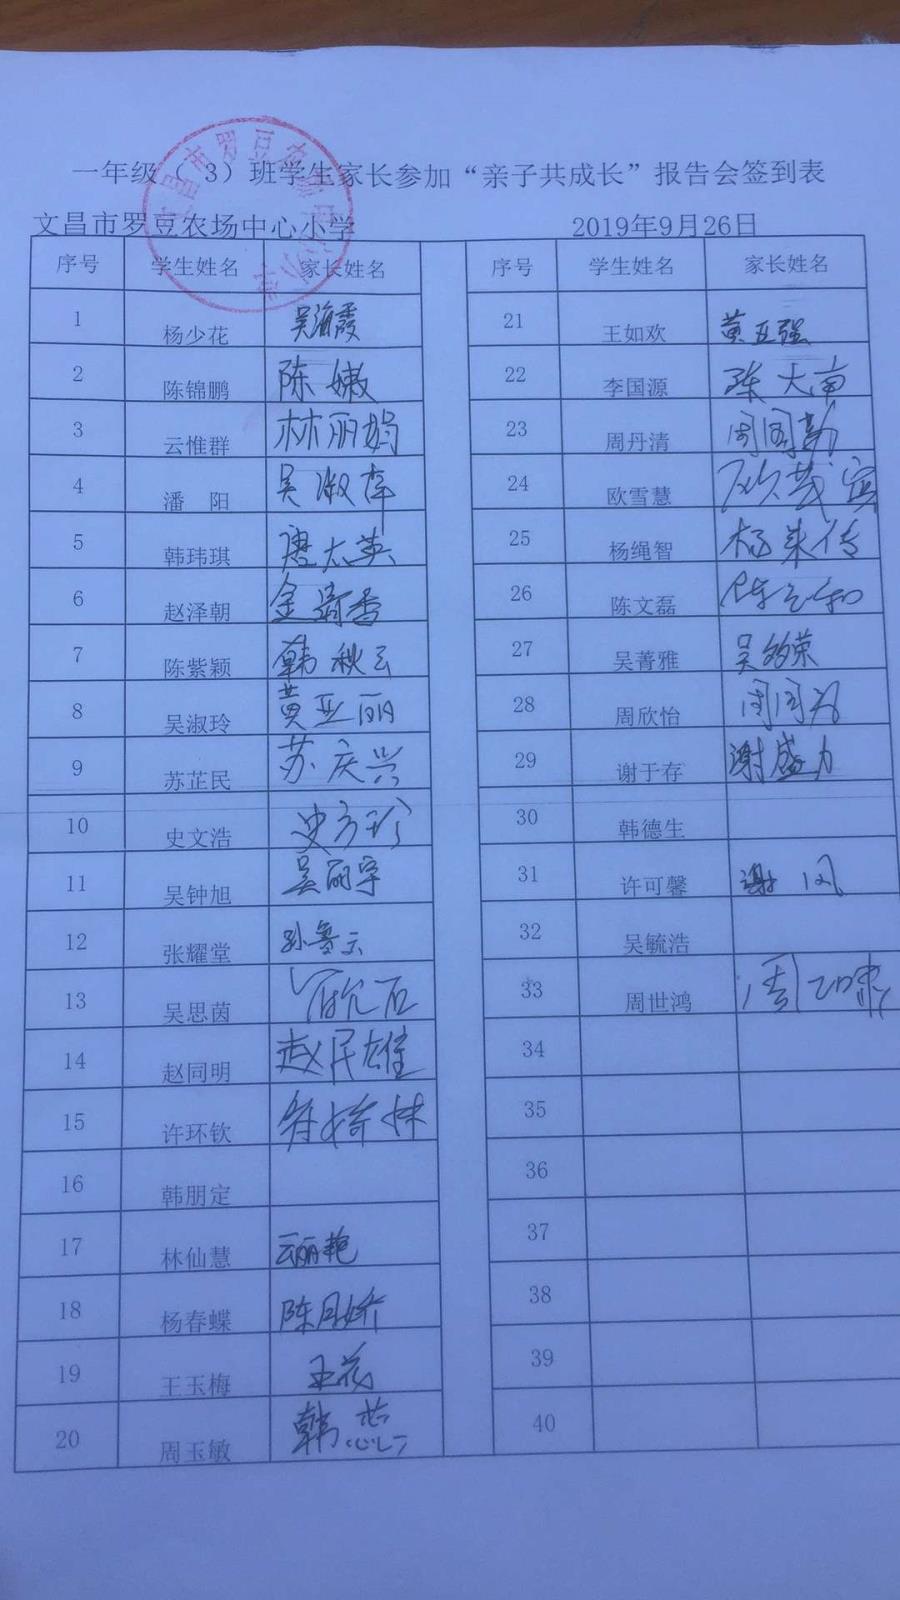 一年级（ 3）班学生家长参加“亲子共成长”报告会签到表
文昌市罗豆农场中心小学 2019年9月26日
序号 学生姓名 家长姓名
1 杨少花 吴海霞
2 陈锦鹏 陈嫩
3 云惟群 林丽娟
4 潘 阳 吴淑
5 韩玮琪 唐太英
6 赵泽朝
7 陈紫颖 韩秋云
8 吴淑玲 黄亚丽
9 苏芷民 苏庆兴
10 史文浩
11 吴钟旭 吴丽宇
12 张耀堂
13 吴思茵
14 赵同明 赵民雄
15 许环钦
16 韩朋定
17 林仙慧 云丽艳
18 杨春蝶 陈月娇
19 王玉梅 王花
20 周玉敏 韩芯
序号 学生姓名 家长姓名
21 王如欢 黄五强
22 李国源 陈大南
23 周丹清
24 欧雪慧
25 杨绳智 杨来传
26 陈文磊
27 吴菁雅
28 周欣怡
29 谢于存 谢盛力
30 韩德生
31 许可馨 谢凤
32 吴毓浩
33 周世鸿
34
35
36
37
38
39
40